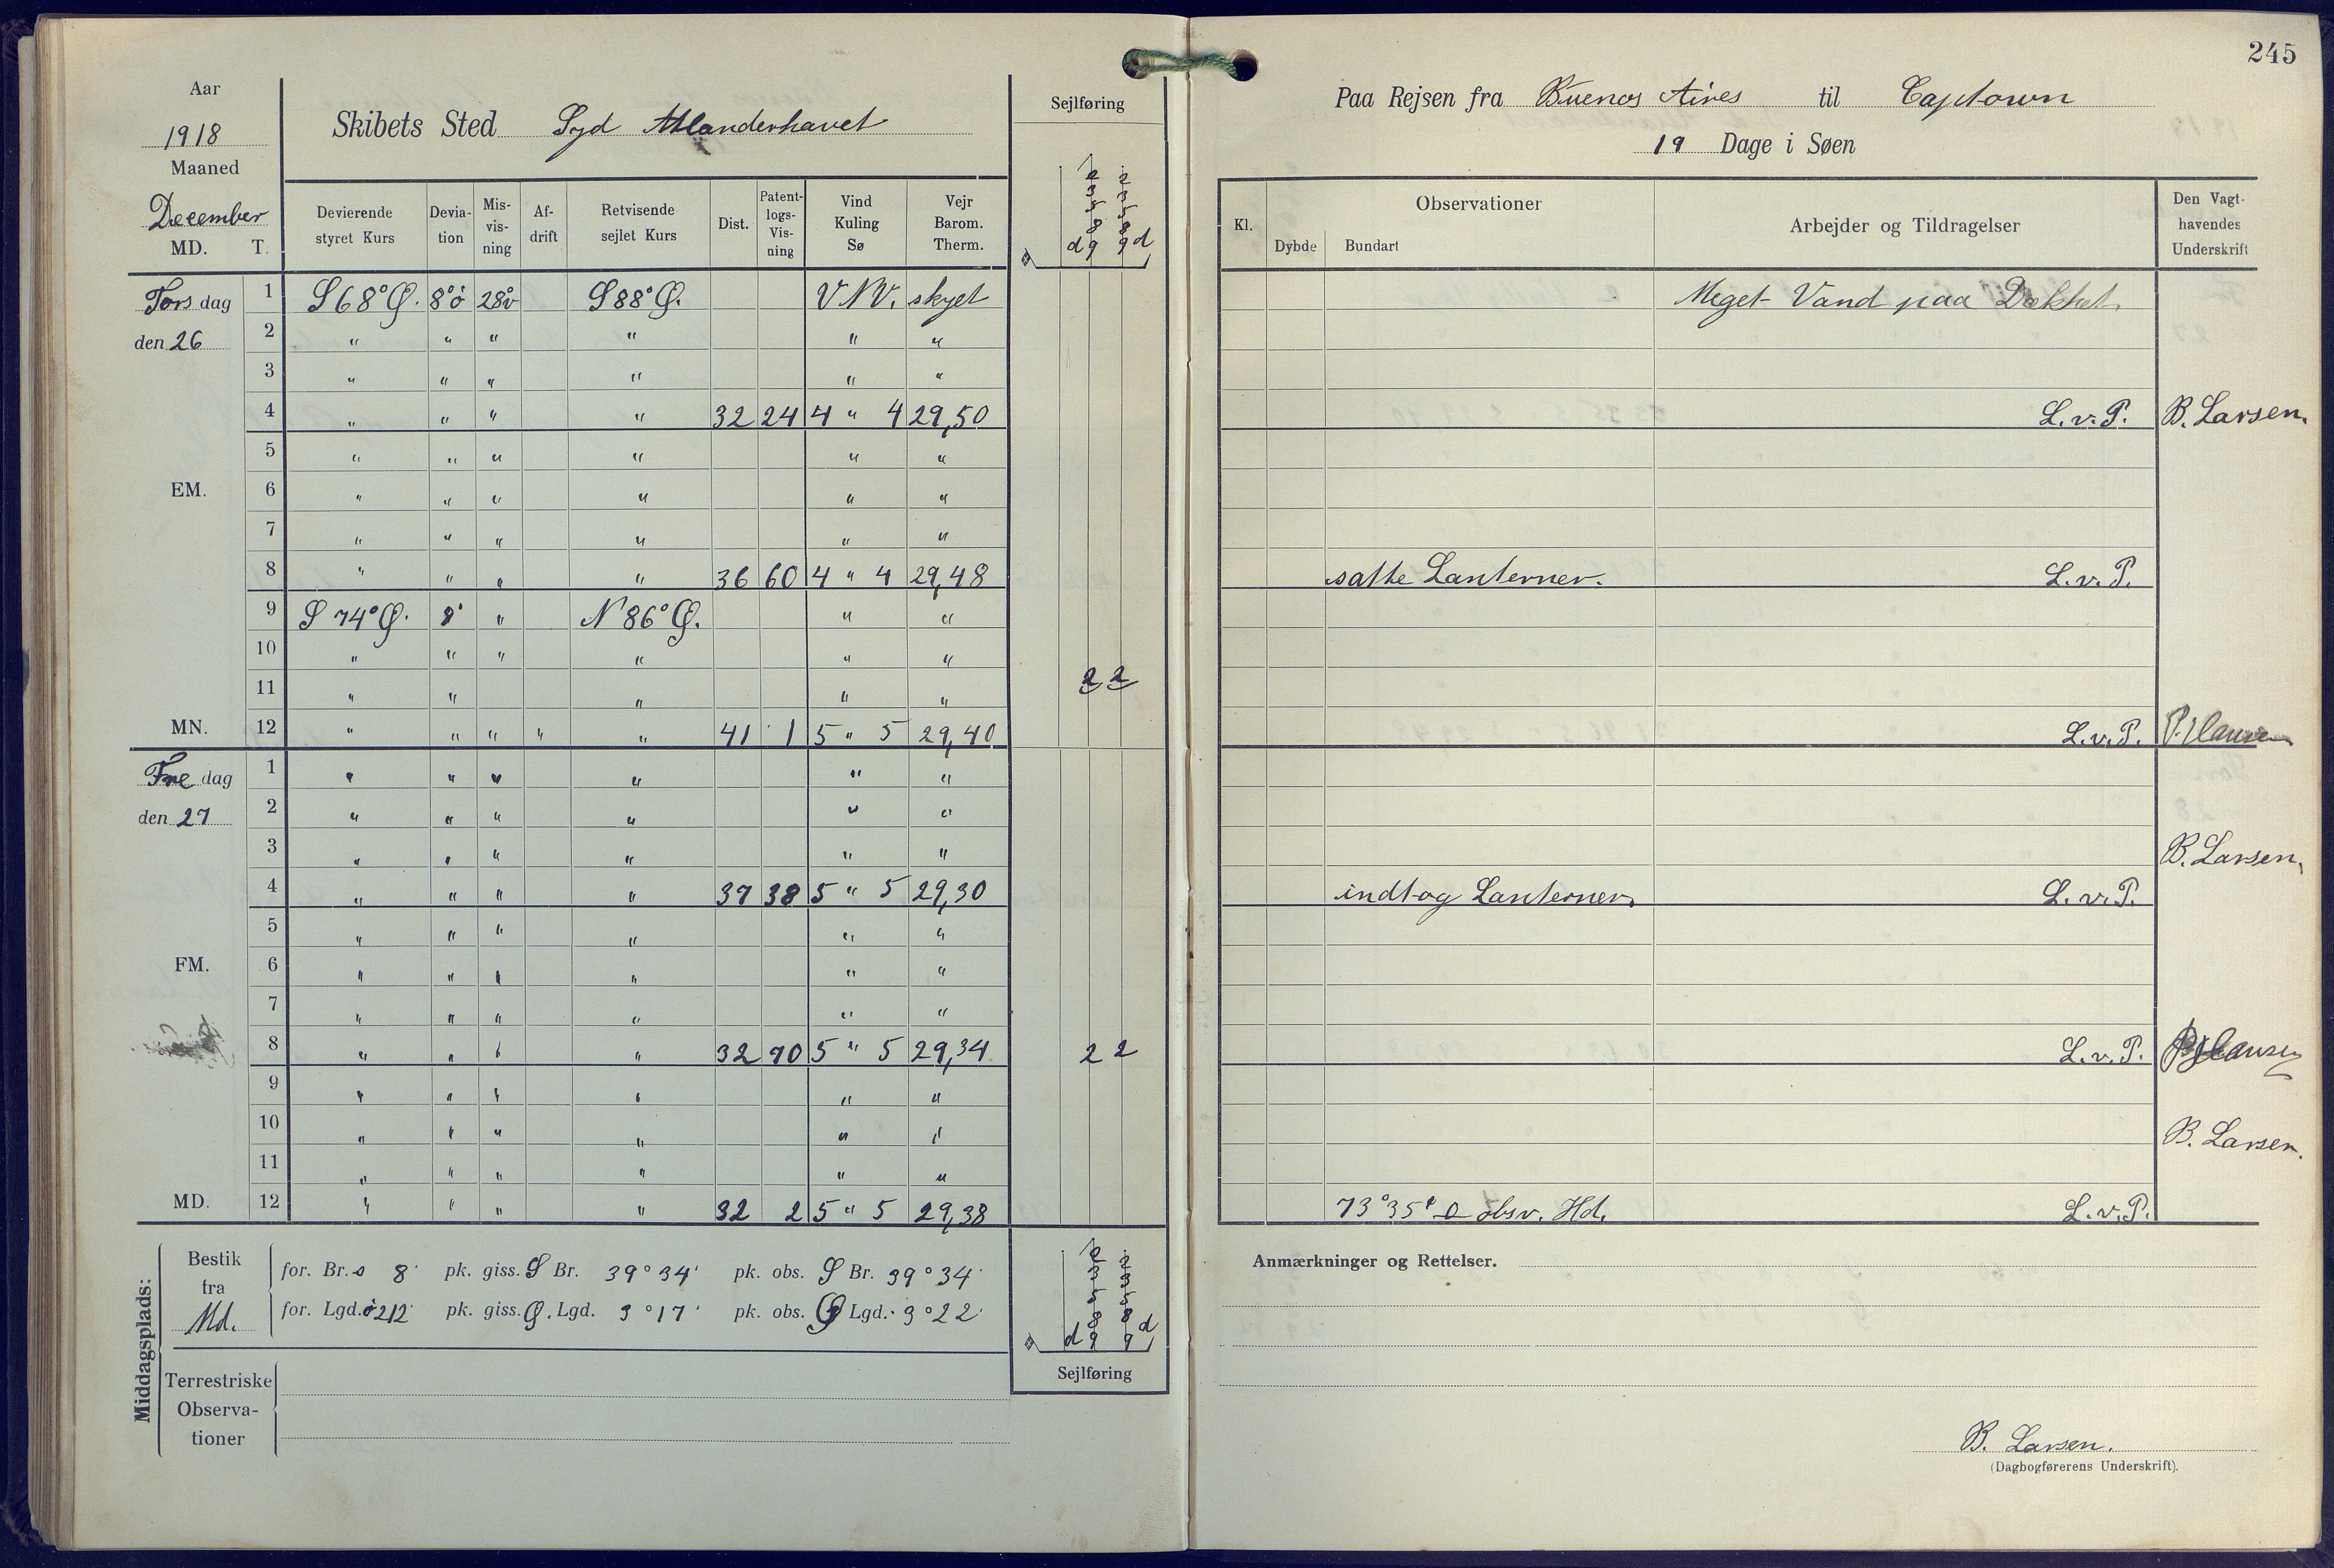 245
Aar
1918
Maaned
December
MD. T.
Skibets Sted Syd Atlanderhavet
Sejlføring
Paa Rejsen fra Buenos Aires til Captown
19 Dage i Søen
Devierende styret Kurs
Devia-tion
Mis-vis-ning
Af-drift
Retvisende sejlet Kurs
Dist.
Patent-logs-Vis-ning
Vind Kuling Sø
Vejr Barom. Therm.
Kl.
Observationer
Dybde Bundart
Arbejder og Tildragelser
Den Vagt-havendes Underskrift
Tors dag 1 S 68° Ø. 8° ö 28° v S 88° Ø. VNV. skyet Meget Vand paa Dækket.
den 26 2 " " " " " "
3 " " " " " "
4 " " " " 32 24 4 " 4 29,50 L.v.P. B. Larsen.
5 " " " " " "
EM. 6 " " " " " "
7 " " " " " "
8 " " " " 36 60 4 " 4 29,48 satte Lanterner. L.v.P.
9 S 74° Ø. 8° " N 86° Ø. " "
10 " " " " " "
11 " " " " " 2 2
MN. 12 " " " " " 41 1 5 " 5 29,40 L.v.P. P. Hansen
Fre dag 1 " " " " " "
den 27 2 " " " " " "
3 " " " " " " B. Larsen.
4 " " " " 37 38 5 " 5 29,30 indtog Lanterner. L.v.P.
5 " " " " " "
FM. 6 " " " " " "
7 " " " " " "
8 " " " " 32 70 5 " 5 29,34 2 2 L.v.P. P Hansen
9 " " " " " "
10 " " " " " " B. Larsen.
11 " " " " " "
MD. 12 " " " " 32 2 5 " 5 29,38 73° 35' obsv. Hd. L.v.P.
Middagsplads:
Bestik fra Md.
for. Br. s 8' pk. giss. S Br. 39° 34' pk. obs. S Br. 39° 34'
for. Lgd. ö 212' pk. giss. Ø. Lgd. 3° 17' pk. obs. Ø Lgd. 3° 22'
Terrestriske
Observa-
tioner
Sejlføring
Anmærkninger og Rettelser.
B. Larsen.
(Dagbogførerens Underskrift).